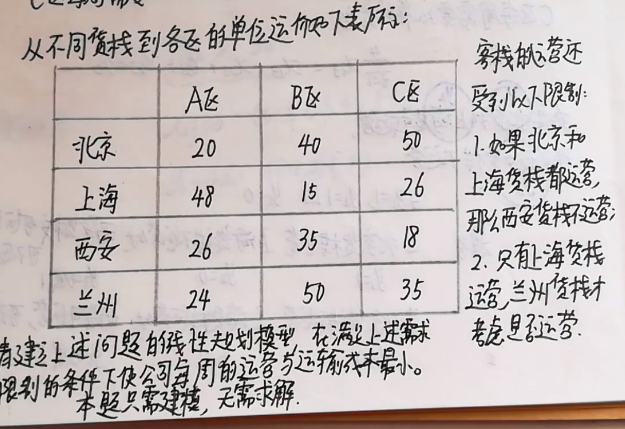 从不同货栈到各区的单位运价如下表所示:
A区 B区 C区
北京 20 40 50
上海 48 15 26
西安 26 35 18
兰州 24 50 35
客栈的运营还
受到以下限制:
1.如果北京和
上海货栈都运营,
那么西安货栈不运营;
2.只有上海货栈
运营,兰州货栈才
考虑是否运营.
请建立上述问题的线性规划模型,在满足上述需求
限制的条件下使公司每周的运营与运输成本最小。
本题只需建模,无需求解.